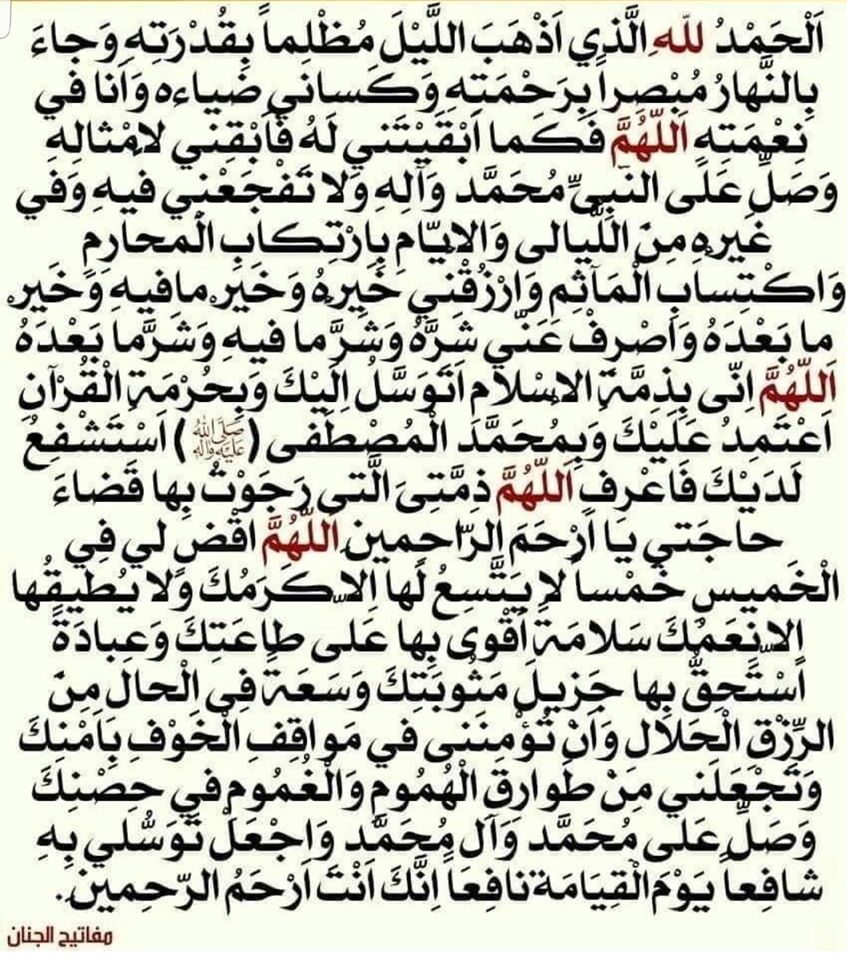 اَلْحَمْدُ للهِ الَّذي اَذْهَبَ اللَّيْلَ مُظْلِماً بِقُدْرَتِهِ وَجاءَ
بِالنَّهارُ مُبْصِراً بِرَحْمَتِهِ وَكَساني ضِياءه وَاَنا في
نِعْمَتِهِ اَللّهُمَّ فَكَما اَبْقَيْتَني لَهُ فَاَبْقِني لاِمْثالِهِ
وَصَلِّ عَلَى النَبِيِّ مُحَمَّد وَآلِهِ وَلا تَفْجَعْني فيهِ وَفي
غَيْرِهِ مِنَ اللَّيالي وَالاَيّامِ بِارْتِكابِ الْمَحارِمِ
وَاكْتِسابِ الْمَآثِمِ وَارْزُقْني خَيْرِهُ وَخَيْرِ مافيهِ وَخَيْرِ
ما بَعْدَهُ وَاَصْرِفْ عَنّي شَرَّهُ وَشَرَّ ما فيهِ وَشَرَّما بَعْدَهُ
اَللّهُمَّ اِنّي بِذِمَّةِ الاِسْلامِ اَتَوَسَّلُ اِلَيْكَ وَبِحُرْمَةِ الْقُرْآنِ
اَعْتَمِدُ عَلَيْكَ وَبِمُحَمَّد الْمُصْطَفى (صَلَّى اللهُ عَلَيْهِ وَآلِهِ) اَسْتَشْفِعُ
لَدَيْكَ فَاَعْرِفِ اَللّهُمَّ ذِمَّتِيَ الَّتي رَجَوْتُ بِها قَضاءَ
حاجَتي يا اَرْحَمَ الرّاحِمينَ اَللّهُمَّ اقْضِ لي فِي
الْخَميسِ خَمْساً لا يَتَّسِعُ لَها اِلاّ كَرَمُكَ وَلا يُطيقُها
اِلاّ نِعَمُكَ سَلامَةً اَقْوى بِها عَلى طاعَتِكَ وَعِبادَةً
اَسْتَحِقُّ بِها جَزيلَ مَثُوبَتِكَ وَسَعَةً فِي الْحالِ مِنَ
الرِّزْقِ الْحَلالِ وَاَنْ تُؤْمِنَني في مَواقِفِ الْخَوْفِ بِاَمْنِكَ
وَتَجْعَلَني مِنْ طَوارِقِ الْهُمُومِ وَالْغُمُومِ في حِصْنِكَ
وَصَلِّ عَلى مُحَمَّد وَآلِ مُحَمَّد وَاجْعَلْ تَوَسُّلي بِهِ
شافِعاً يَوْمَ الْقِيامَةِ نافِعَاً اِنَّكَ اَنْتَ اَرْحَمُ الرّحِمينَ.
مفاتيح الجنان